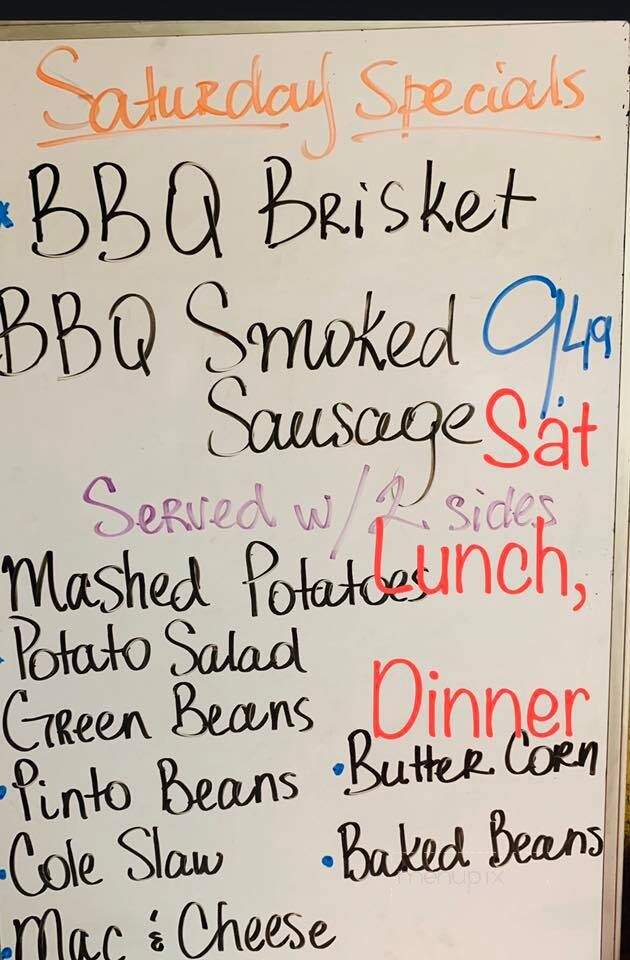 Saturday Specials
BBQ Brisket
BBQ Smoked 9.49
Sausage Sat
Served w/ 2 sides
Lunch,
Mashed Potatoes
• Potato Salad
Dinner
Green Beans
• Pinto Beans • Butter Corn
• Cole Slaw • Baked Beans
menupix
• Mac & Cheese